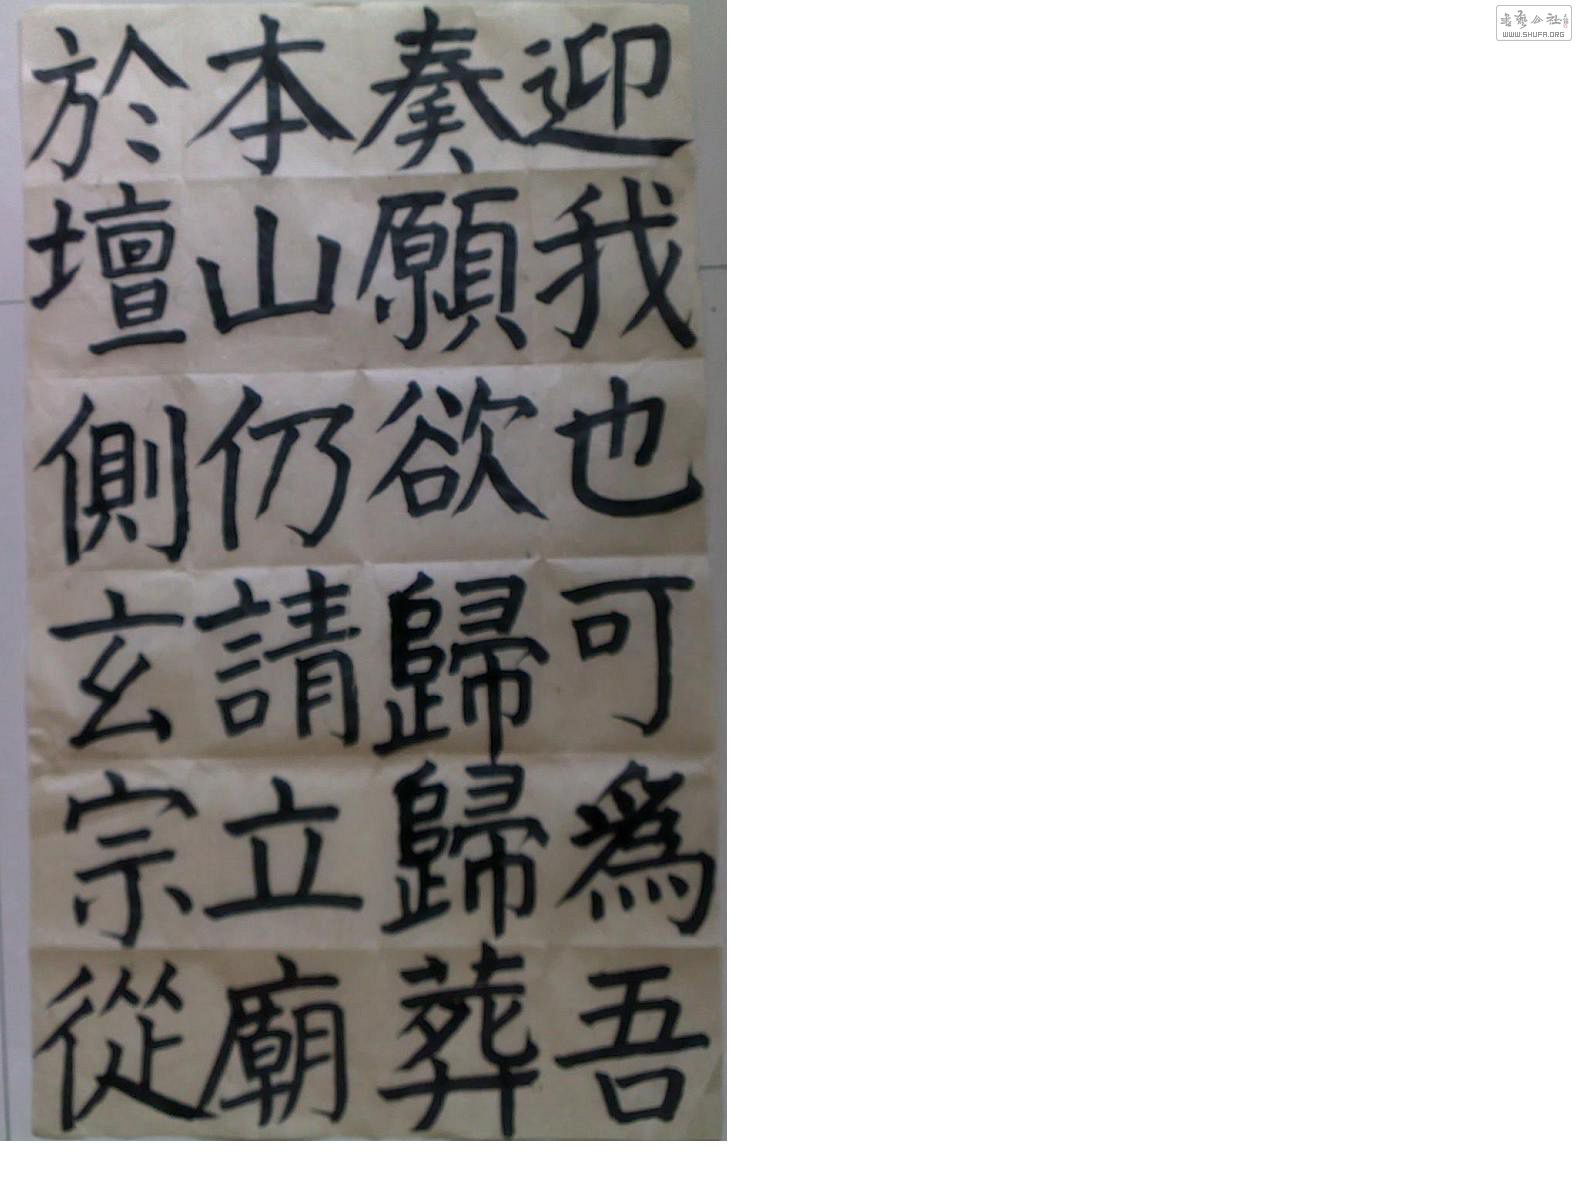 迎我也可為吾
奏願欲歸歸葬
本山仍請立廟
於壇側玄宗從
WWW.SHUFA.ORG